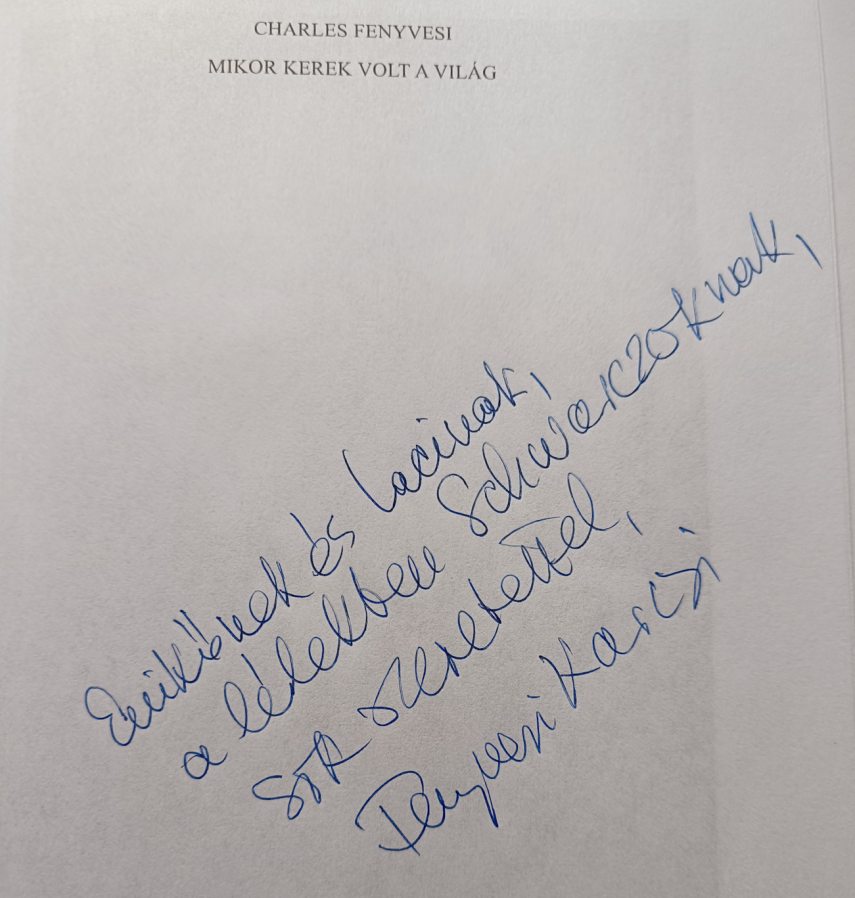 CHARLES FENYVESI
MIKOR KEREK VOLT A VILÁG
Enikőnek és Lacinak,
a lélekben Schwarczoknak,
sok szeretettel,
Fenyvesi Karcsi